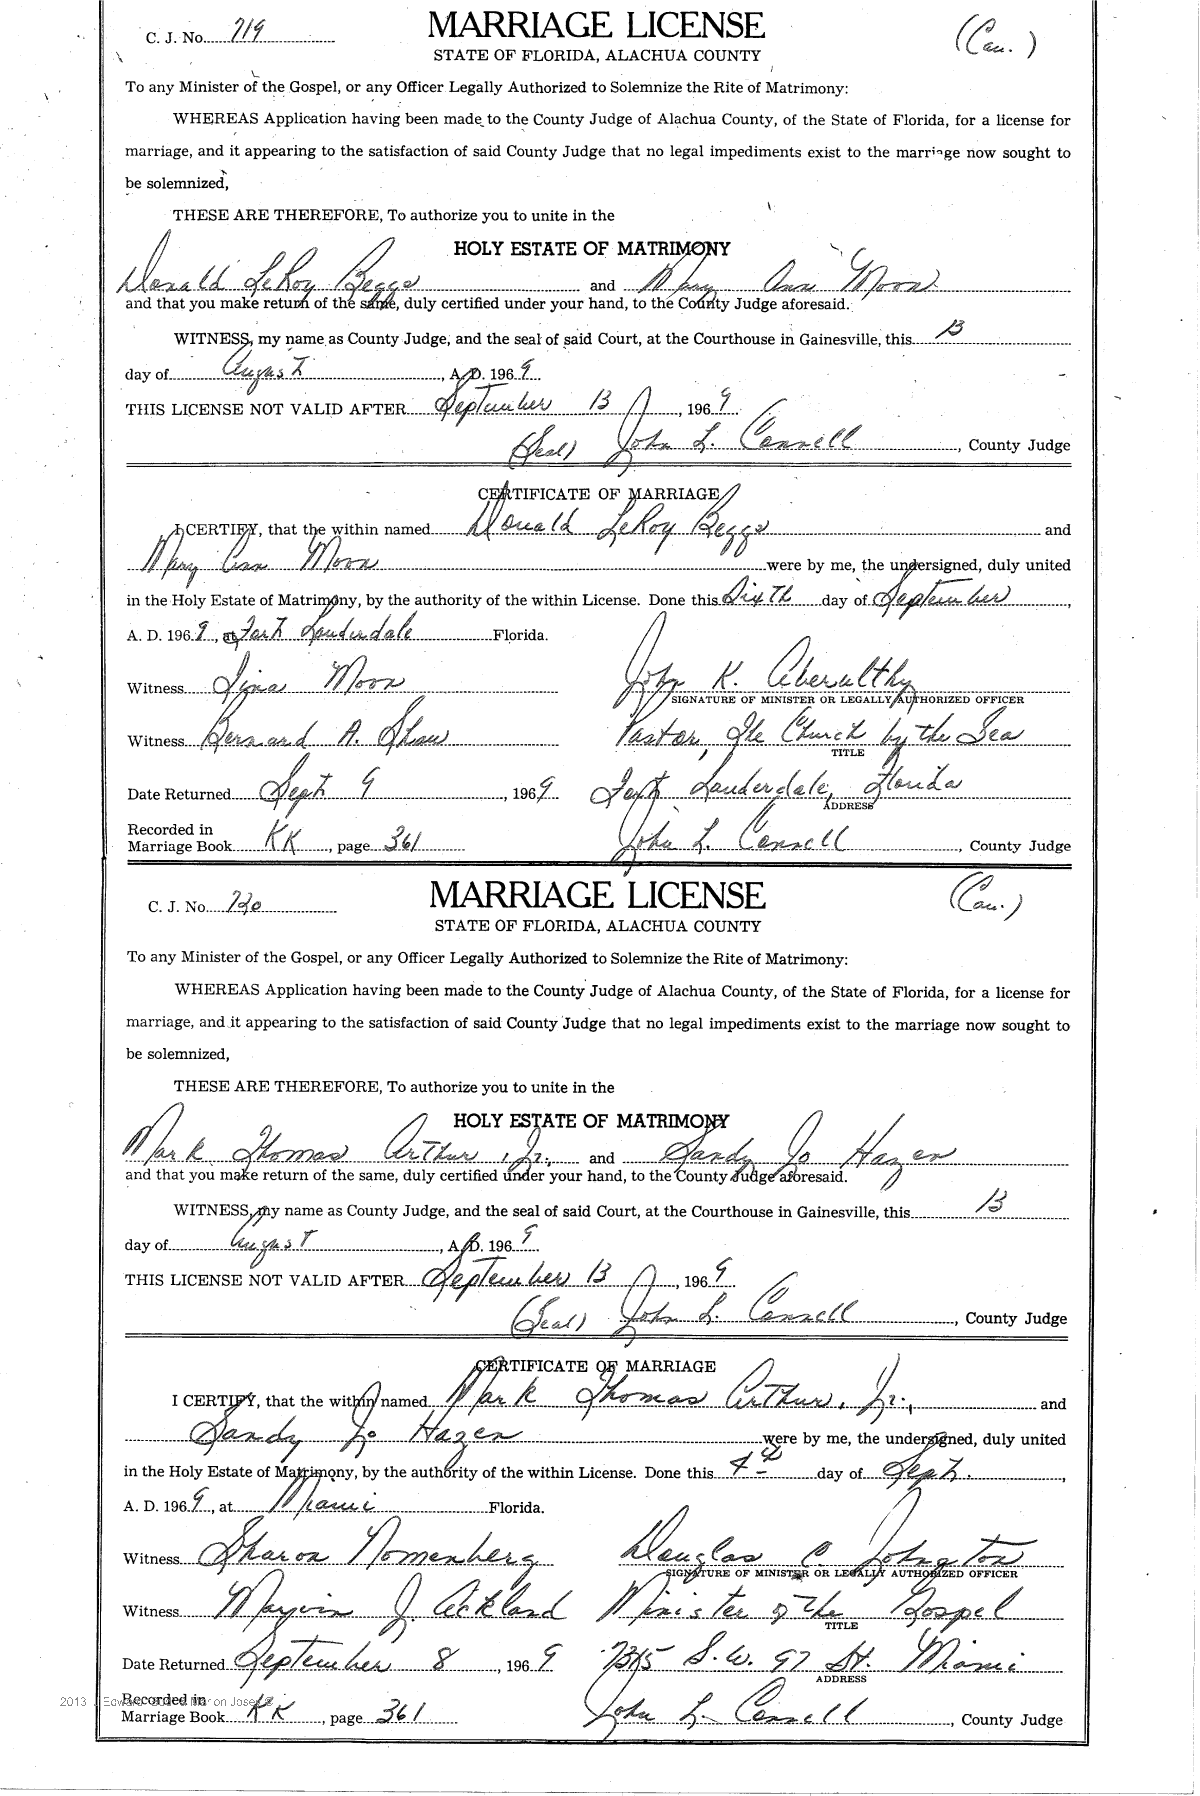 C. J. No. 719
MARRIAGE LICENSE
(Cau.)
STATE OF FLORIDA, ALACHUA COUNTY
To any Minister of the Gospel, or any Officer Legally Authorized to Solemnize the Rite of Matrimony:
WHEREAS Application having been made to the County Judge of Alachua County, of the State of Florida, for a license for
marriage, and it appearing to the satisfaction of said County Judge that no legal impediments exist to the marriage now sought to
be solemnized,
THESE ARE THEREFORE, To authorize you to unite in the
HOLY ESTATE OF MATRIMONY
Donald LeRoy Beggs and Mary Ann Moon
and that you make return of the same, duly certified under your hand, to the County Judge aforesaid.
WITNESS, my name as County Judge, and the seal of said Court, at the Courthouse in Gainesville, this 13
day of August, A. D. 1969
THIS LICENSE NOT VALID AFTER September 13, 1969
(Seal) John L. Connell, County Judge
CERTIFICATE OF MARRIAGE
I CERTIFY, that the within named Donald LeRoy Beggs and
Mary Ann Moon were by me, the undersigned, duly united
in the Holy Estate of Matrimony, by the authority of the within License. Done this Sixth day of September,
A. D. 1969, at Fort Lauderdale Florida.
Witness Moon John K.
SIGNATURE OF MINISTER OR LEGALLY AUTHORIZED OFFICER
Witness Bernard A. Shaw Pastor, The Church by the Sea
TITLE
Date Returned Sept 9, 1969 Fort Lauderdale, Florida
ADDRESS
Recorded in
Marriage Book KK, page 361 John L. Connell, County Judge
C. J. No. 720
MARRIAGE LICENSE
(Cau.)
STATE OF FLORIDA, ALACHUA COUNTY
To any Minister of the Gospel, or any Officer Legally Authorized to Solemnize the Rite of Matrimony:
WHEREAS Application having been made to the County Judge of Alachua County, of the State of Florida, for a license for
marriage, and it appearing to the satisfaction of said County Judge that no legal impediments exist to the marriage now sought to
be solemnized,
THESE ARE THEREFORE, To authorize you to unite in the
HOLY ESTATE OF MATRIMONY
Mark Thomas Arthur, Jr., and Sandy Jo Hazen
and that you make return of the same, duly certified under your hand, to the County Judge aforesaid.
WITNESS, my name as County Judge, and the seal of said Court, at the Courthouse in Gainesville, this 13
day of August, A. D. 1969
THIS LICENSE NOT VALID AFTER September 13, 1969
(Seal) John L. Connell, County Judge
CERTIFICATE OF MARRIAGE
I CERTIFY, that the within named Mark Thomas Arthur, Jr., and
Sandy Jo Hazen were by me, the undersigned, duly united
in the Holy Estate of Matrimony, by the authority of the within License. Done this 4th day of Sept.,
A. D. 1969, at Miami Florida.
Witness Sharon Nomenberg Douglas C. Johnston
SIGNATURE OF MINISTER OR LEGALLY AUTHORIZED OFFICER
Witness Marvin J. Ackland Minister of the Gospel
TITLE
Date Returned September 8, 1969 7315 S.W. 97 St. Miami
ADDRESS
Recorded in
Marriage Book KK, page 361 John L. Connell, County Judge
2013